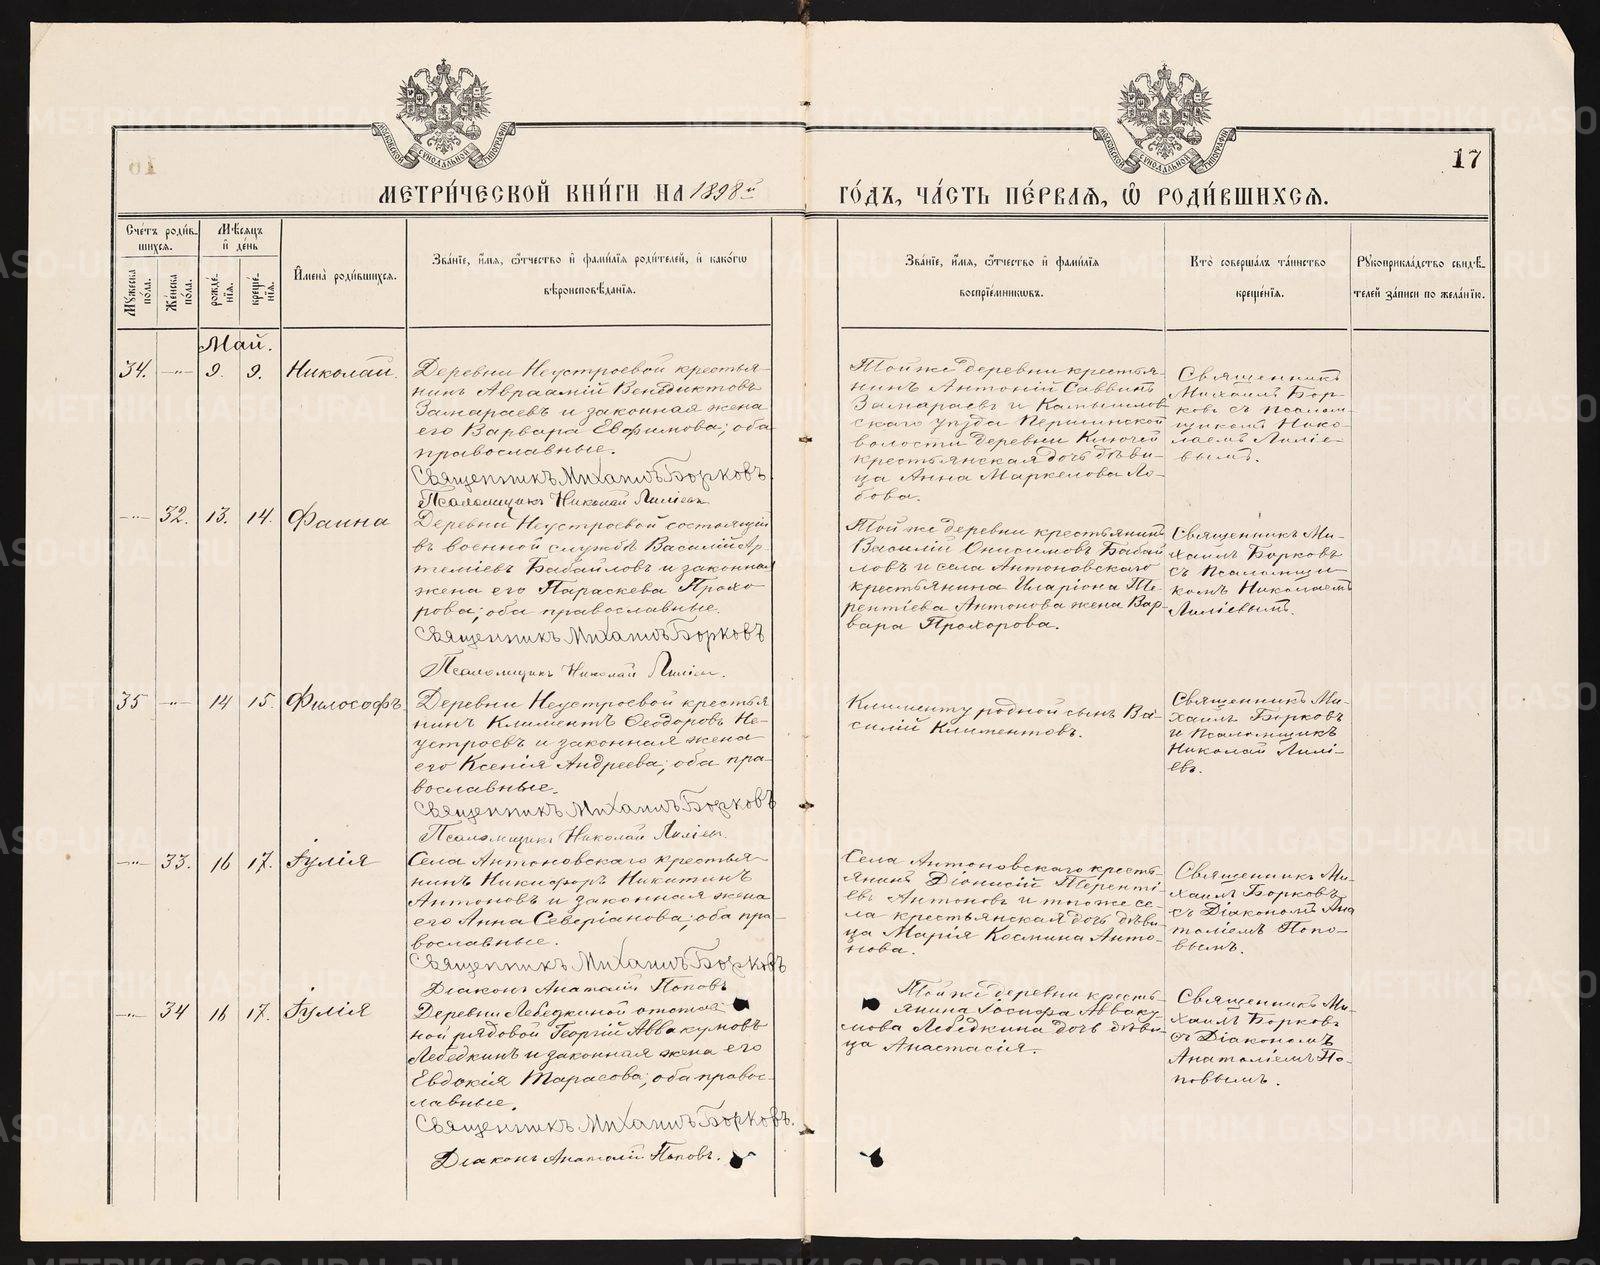 МОСКОВСКОЙ СѴНОДАЛЬНОЙ ТИПОГРАФІИ
МОСКОВСКОЙ СѴНОДАЛЬНОЙ ТИПОГРАФІИ
17
МЕТРИ́ЧЕСКОЙ КНИ́ГИ НА 1898й ГО́ДЪ, ЧА́СТЬ ПЕ́РВАЯ, Ѡ҆ РОДИ́ВШИХСЯ.
Сче́тъ роди́в-
шихся.
Мѣ́сяцъ
и҆ де́нь
Мꙋ́жеска по́ла.
Же́нска по́ла.
рожде́-
нїя.
креще́-
нїя.
И҆мена̀ роди́вшихся.
Зва́нїе, и҆́мя, ѻ҆́тчество и҆ фами́лїя роди́телей, и҆ како́гѡ
вѣроисповѣ́данїя.
Зва́нїе, и҆́мя, ѻ҆́тчество и҆ фами́лїя
воспрїе́мниковъ.
Кто̀ соверша́лъ та́инство
креще́нїя.
Рꙋкоприкла́дство свидѣ́-
телей за́писи по жела́нїю.
Май.
34. —"— 9. 9. Николай.
Деревни Неустроевой крестья-
нинъ Авраамій Венедиктовъ
Замараевъ и законная жена
его Варвара Евфимова; оба
православные.
Священникъ Михаилъ Борковъ.
Псаломщикъ Николай Лиліевъ
Той же деревни крестья-
нинъ Антоній Саввинъ
Замараевъ и Камышлов
скаго уѣзда Першинской
волости деревни Ключей
крестьянская дочь дѣви-
ца Анна Маркелова Ло-
бова.
Священникъ
Михаилъ Бор-
ковъ съ псалом-
щикомъ Нико-
лаемъ Лиліе-
вымъ.
—"— 32. 13. 14. Фаина
Деревни Неустроевой состоящій
въ военной службѣ Василій Ар-
теміевъ Бабайловъ и законная
жена его Параскева Прохо
рова; оба православные.
Священникъ Михаилъ Борковъ
Псаломщикъ Николай Лиліев.
Той же деревни крестьянинъ
Василій Онисимовъ Бабай
ловъ и села Антоновскаго
крестьянина Иларіона Те-
рентіева Антонова жена Вар-
вара Прохорова.
Священникъ Ми-
хаилъ Борковъ
съ псаломщи-
комъ Николаемъ
Лиліевымъ.
35 —"— 14 15. Философъ.
Деревни Неустроевой крестья
нинъ Климентъ Ѳеодоровъ Не-
устроевъ и законная жена
его Ксенія Андреева; оба пра-
вославные.
Священникъ Михаилъ Борковъ
Псаломщикъ Николай Лиліев.
Клименту родной сынъ Ва-
силій Климентовъ.
Священникъ Ми-
хаилъ Борковъ
и псаломщикъ
Николай Лилі-
евъ.
—"— 33. 16 17. Іулія
Села Антоновскаго крестья-
нинъ Никифоръ Никитинъ
Антоновъ и законная жена
его Анна Северіанова; оба пра-
вославные.
Священникъ Михаилъ Борковъ
Діаконъ Анатолій Поповъ
Села Антоновскаго кресть-
янинъ Діонисій Теренті-
евъ Антоновъ и того же се-
ла крестьянская дочь дѣви-
ца Марія Космина Анто-
нова.
Священникъ Ми-
хаилъ Борковъ
съ Діакономъ Ана
толіемъ Попо-
вымъ.
—"— 34 16 17. Іулія
Деревни Лебедкиной отстав
ной рядовой Георгій Аввакумовъ
Лебедкинъ и законная жена его
Евдокія Тарасова; оба правос-
лавные.
Священникъ Михаилъ Борковъ.
Діаконъ Анатолій Поповъ.
Той же деревни кресть-
янина Іосифа Авваку
мова Лебедкина дочь дѣви-
ца Анастасія.
Священникъ Ми-
хаилъ Борковъ
съ Діакономъ
Анатоліемъ По-
повымъ.
METRIKI.GASO-URAL.RU